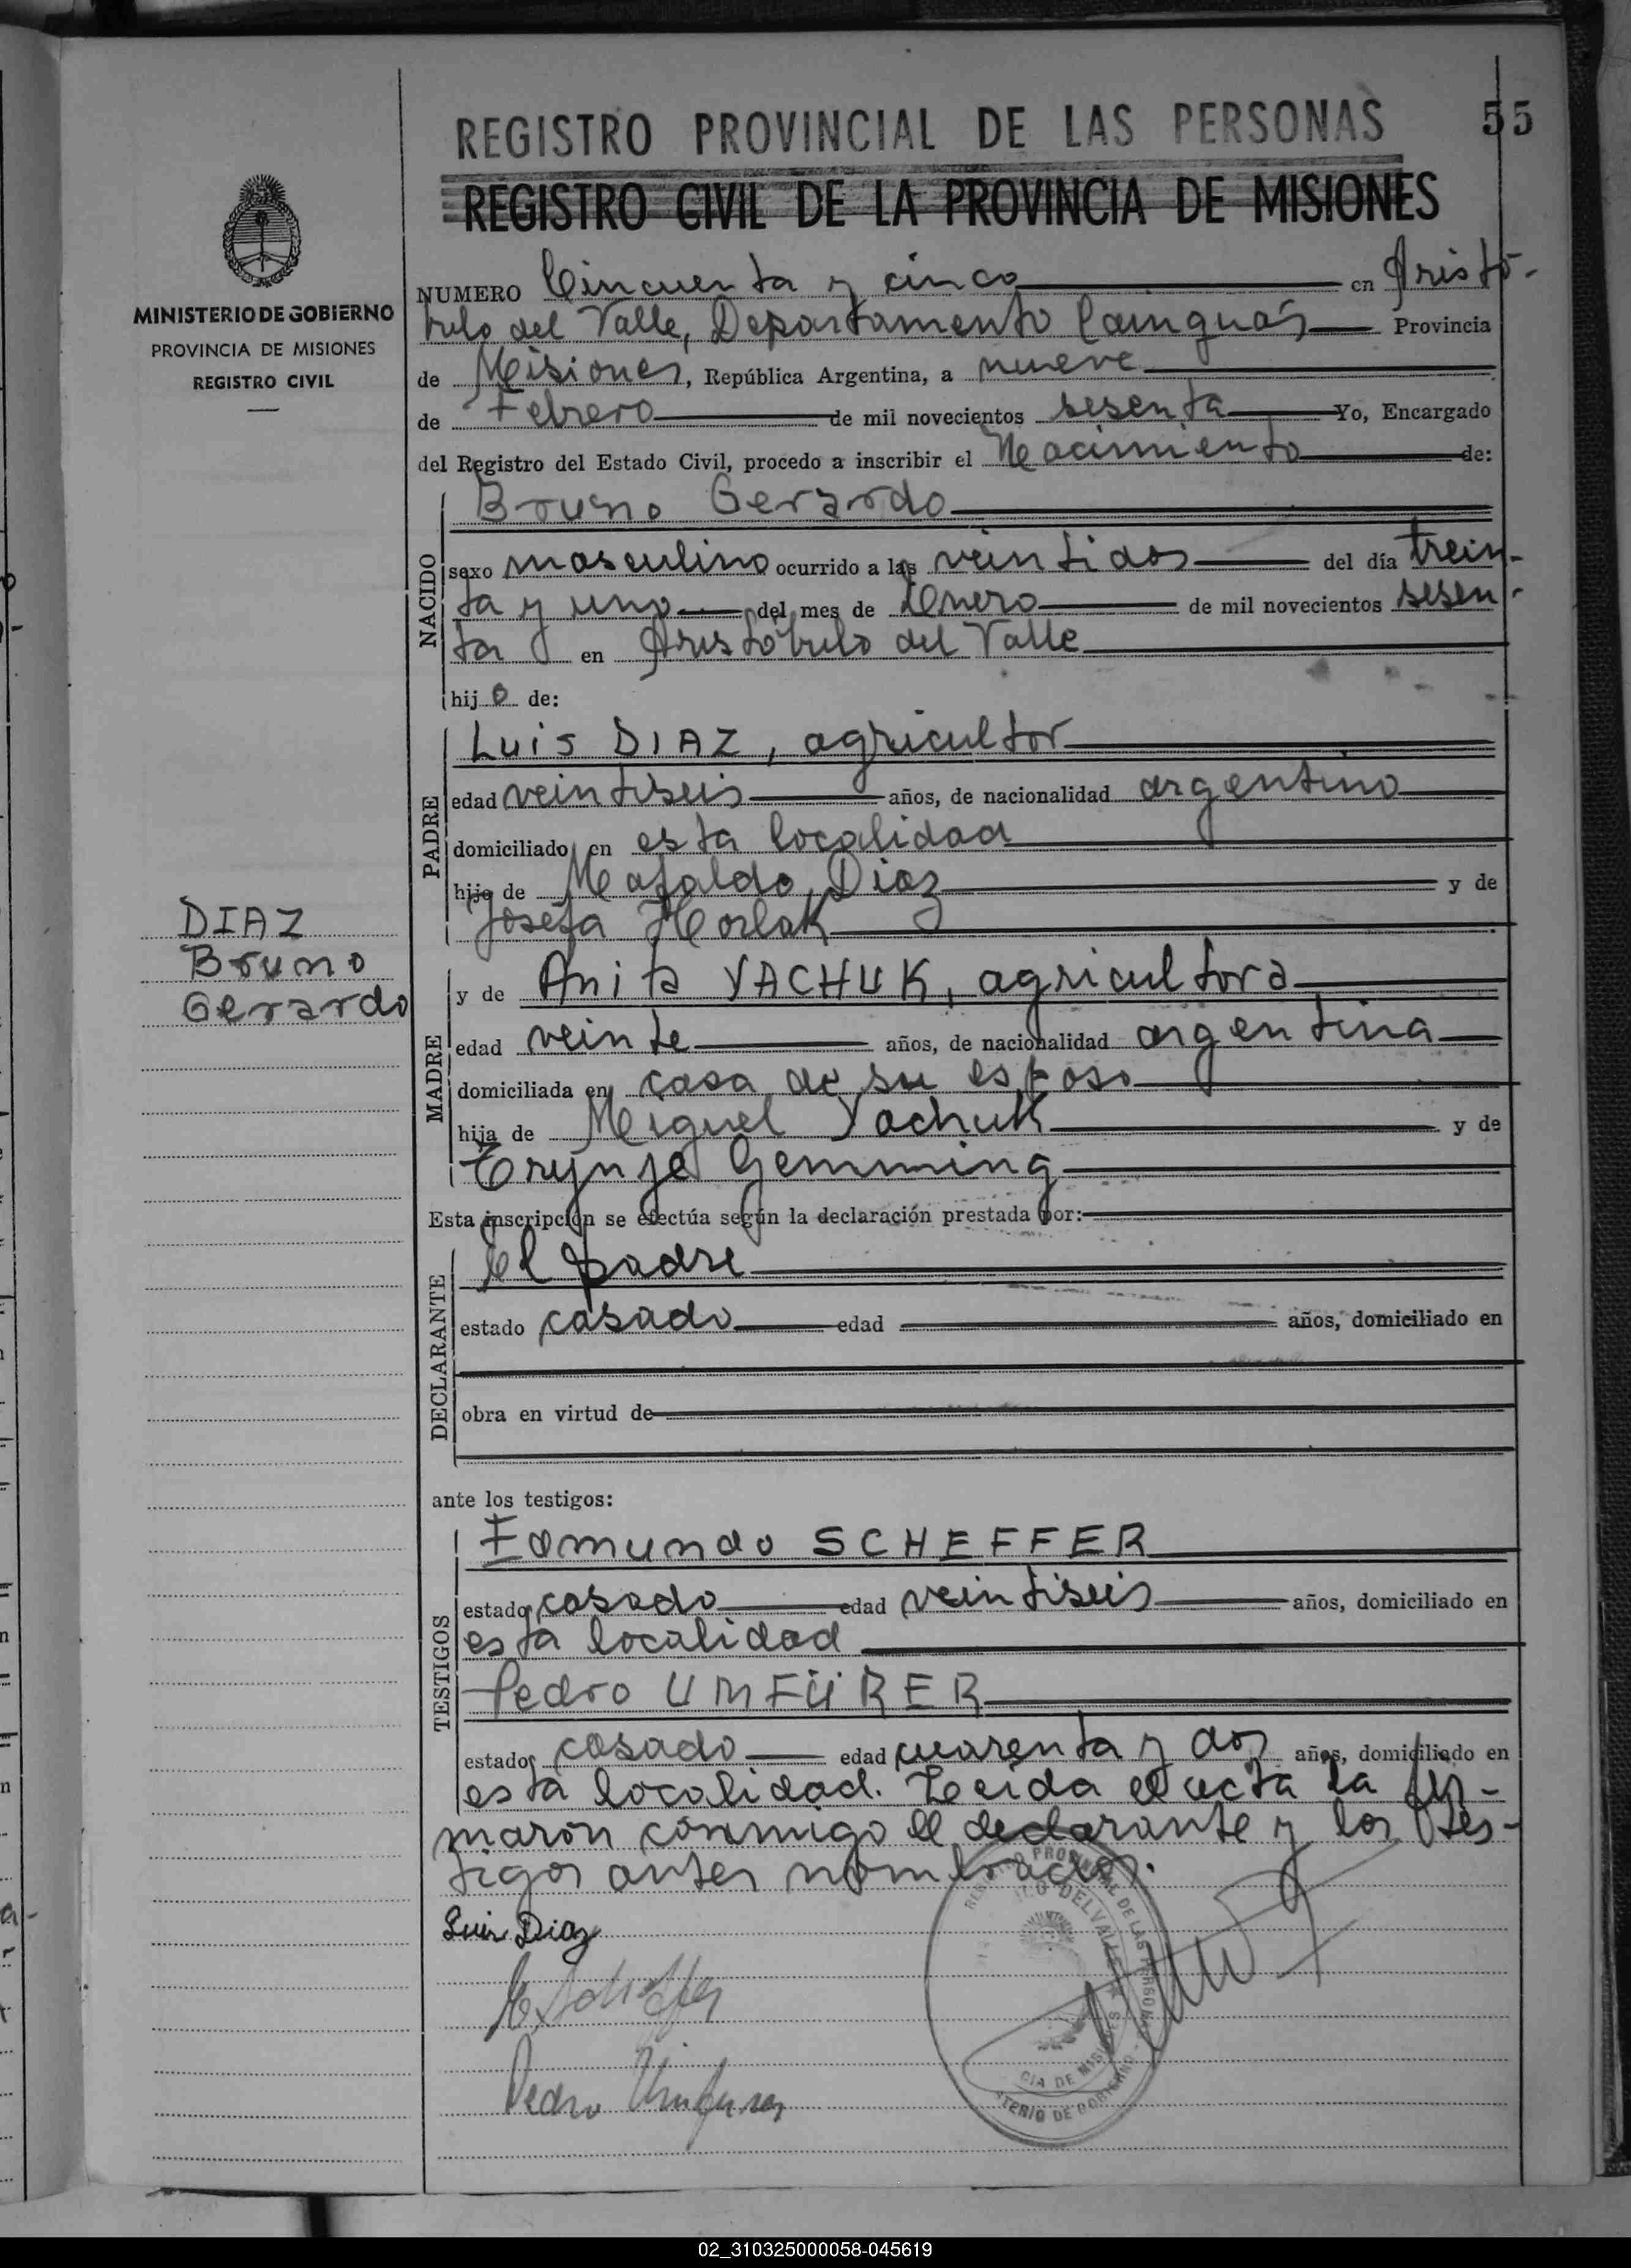 REGISTRO PROVINCIAL DE LAS PERSONAS 55
REGISTRO CIVIL DE LA PROVINCIA DE MISIONES
MINISTERIO DE GOBIERNO
PROVINCIA DE MISIONES
REGISTRO CIVIL
NUMERO Cincuenta y cinco en Aristó-
bulo del Valle, Departamento Cainguás Provincia
de Misiones, República Argentina, a nueve
de Febrero de mil novecientos sesenta Yo, Encargado
del Registro del Estado Civil, procedo a inscribir el Nacimiento de:
NACIDO
Bruno Gerardo
sexo masculino ocurrido a las veintidos del día trein-
ta y uno del mes de Enero de mil novecientos sesen-
ta en Aristóbulo del Valle
hijo de:
PADRE
Luis DIAZ, agricultor
edad veintiseis años, de nacionalidad argentino
domiciliado en esta localidad
hijo de Mafaldo Diaz y de
Josefa Horlak
DIAZ
Bruno
Gerardo
MADRE
y de Anita YACHUK, agricultora
edad veinte años, de nacionalidad argentina
domiciliada en casa de su esposo
hija de Miguel Yachuk y de
Gemming
Esta inscripción se efectúa según la declaración prestada por:
DECLARANTE
El padre
estado casado edad años, domiciliado en
obra en virtud de
ante los testigos:
TESTIGOS
Edmundo SCHEFFER
estado casado edad veintiseis años, domiciliado en
esta localidad
Pedro UMFÜRER
estado casado edad cuarenta y dos años, domiciliado en
esta localidad. Leida el acta la fir-
maron conmigo el declarante y los tes-
tigos antes nombrados.
Luis Diaz
E. Scheffer
Pedro Umfurer
02_310325000058-045619